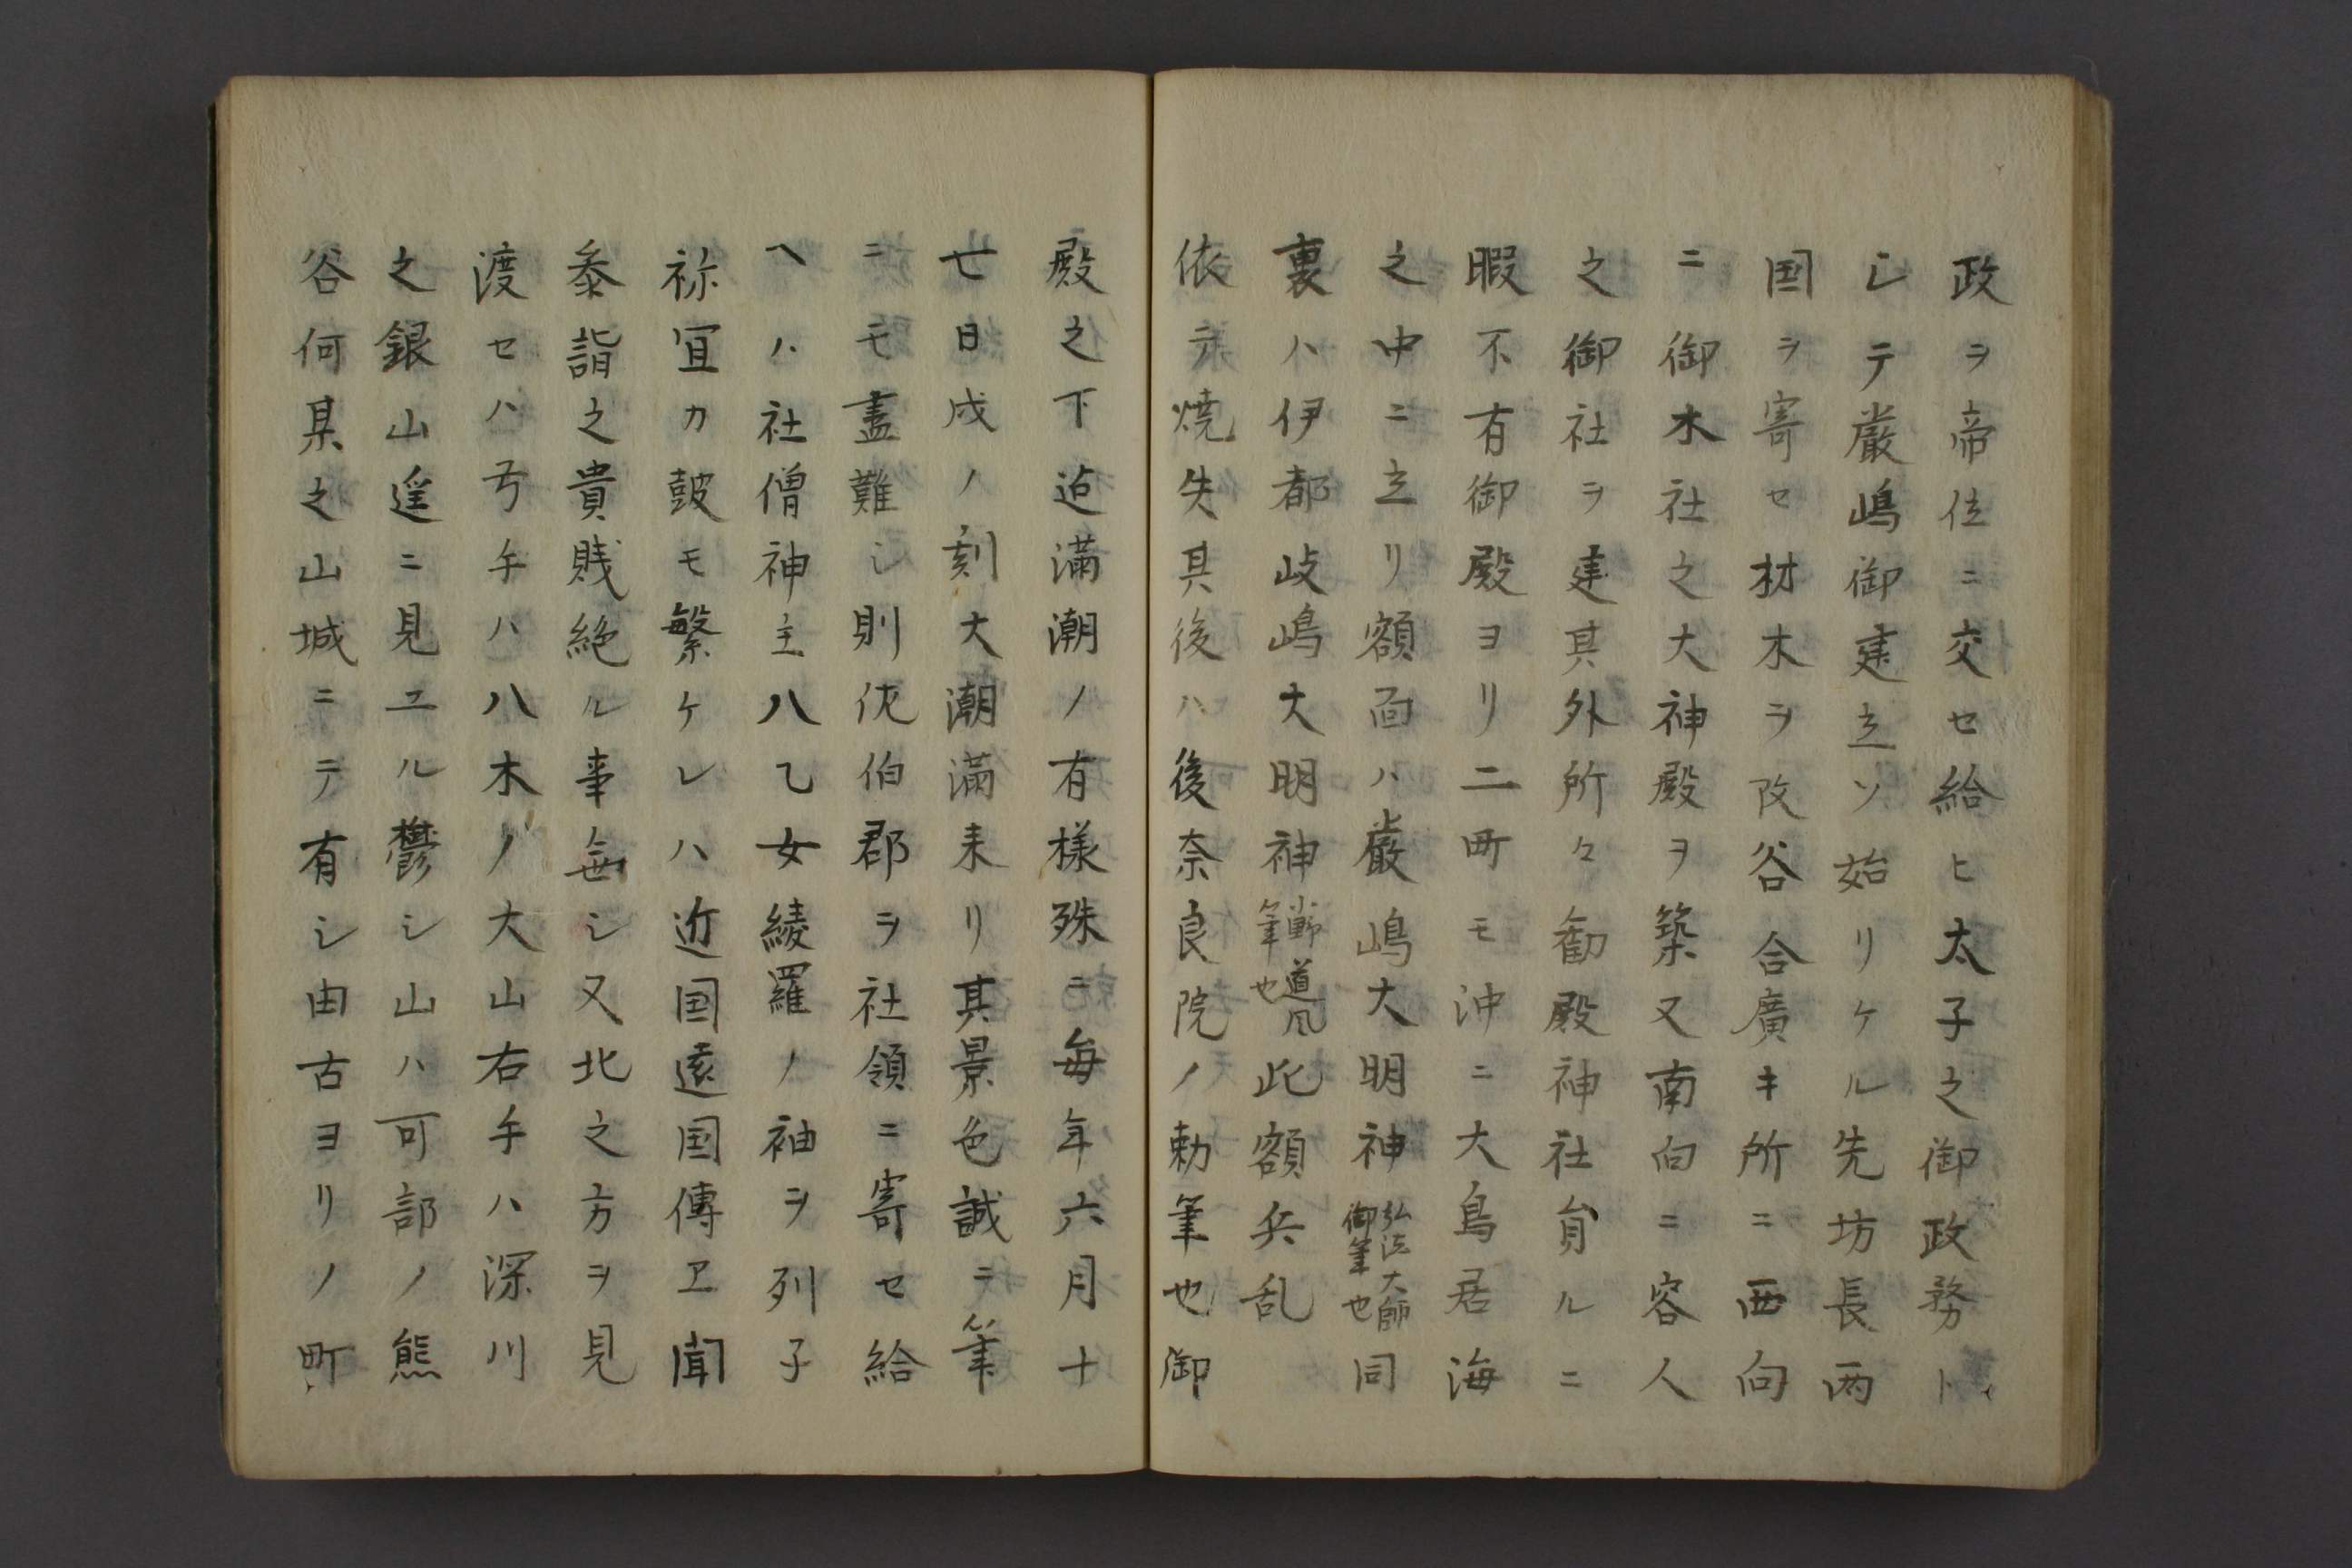 政ヲ帝位ニ交セ給ヒ太子之御政務ト
シテ厳嶋御建立ソ始リケル先坊長両
国ヲ寄セ材木ヲ改谷合廣キ所ニ西向
ニ御木社之大神殿ヲ築又南向ニ客人
之御社ヲ建其外所々勧殿神社員ルニ
暇不有御殿ヨリ二町モ沖ニ大鳥居海
之中ニ立リ額面ハ厳嶋大明神弘法大師御筆也同
裏ハ伊都岐嶋大明神小野道風筆也此額兵乱
依テ焼失其後ハ後奈良院ノ勅筆也御
殿之下迠満潮ノ有様殊ニ毎年六月十
七日戌ノ刻大潮満来リ其景色誠ニ筆
ニモ盡難シ則佐伯郡ヲ社領ニ寄セ給
ヘハ社僧神主八乙女綾羅ノ袖ヲ列子
祢宜カ皷モ繁ケレハ近国遠国傳ヱ聞
参詣之貴賎絶ル事無シ又北之方ヲ見
渡セハ弓手ハ八木ノ大山右手ハ深川
之銀山遥ニ見ユル欝シ山ハ可部ノ熊
谷何某之山城ニテ有シ由古ヨリノ町